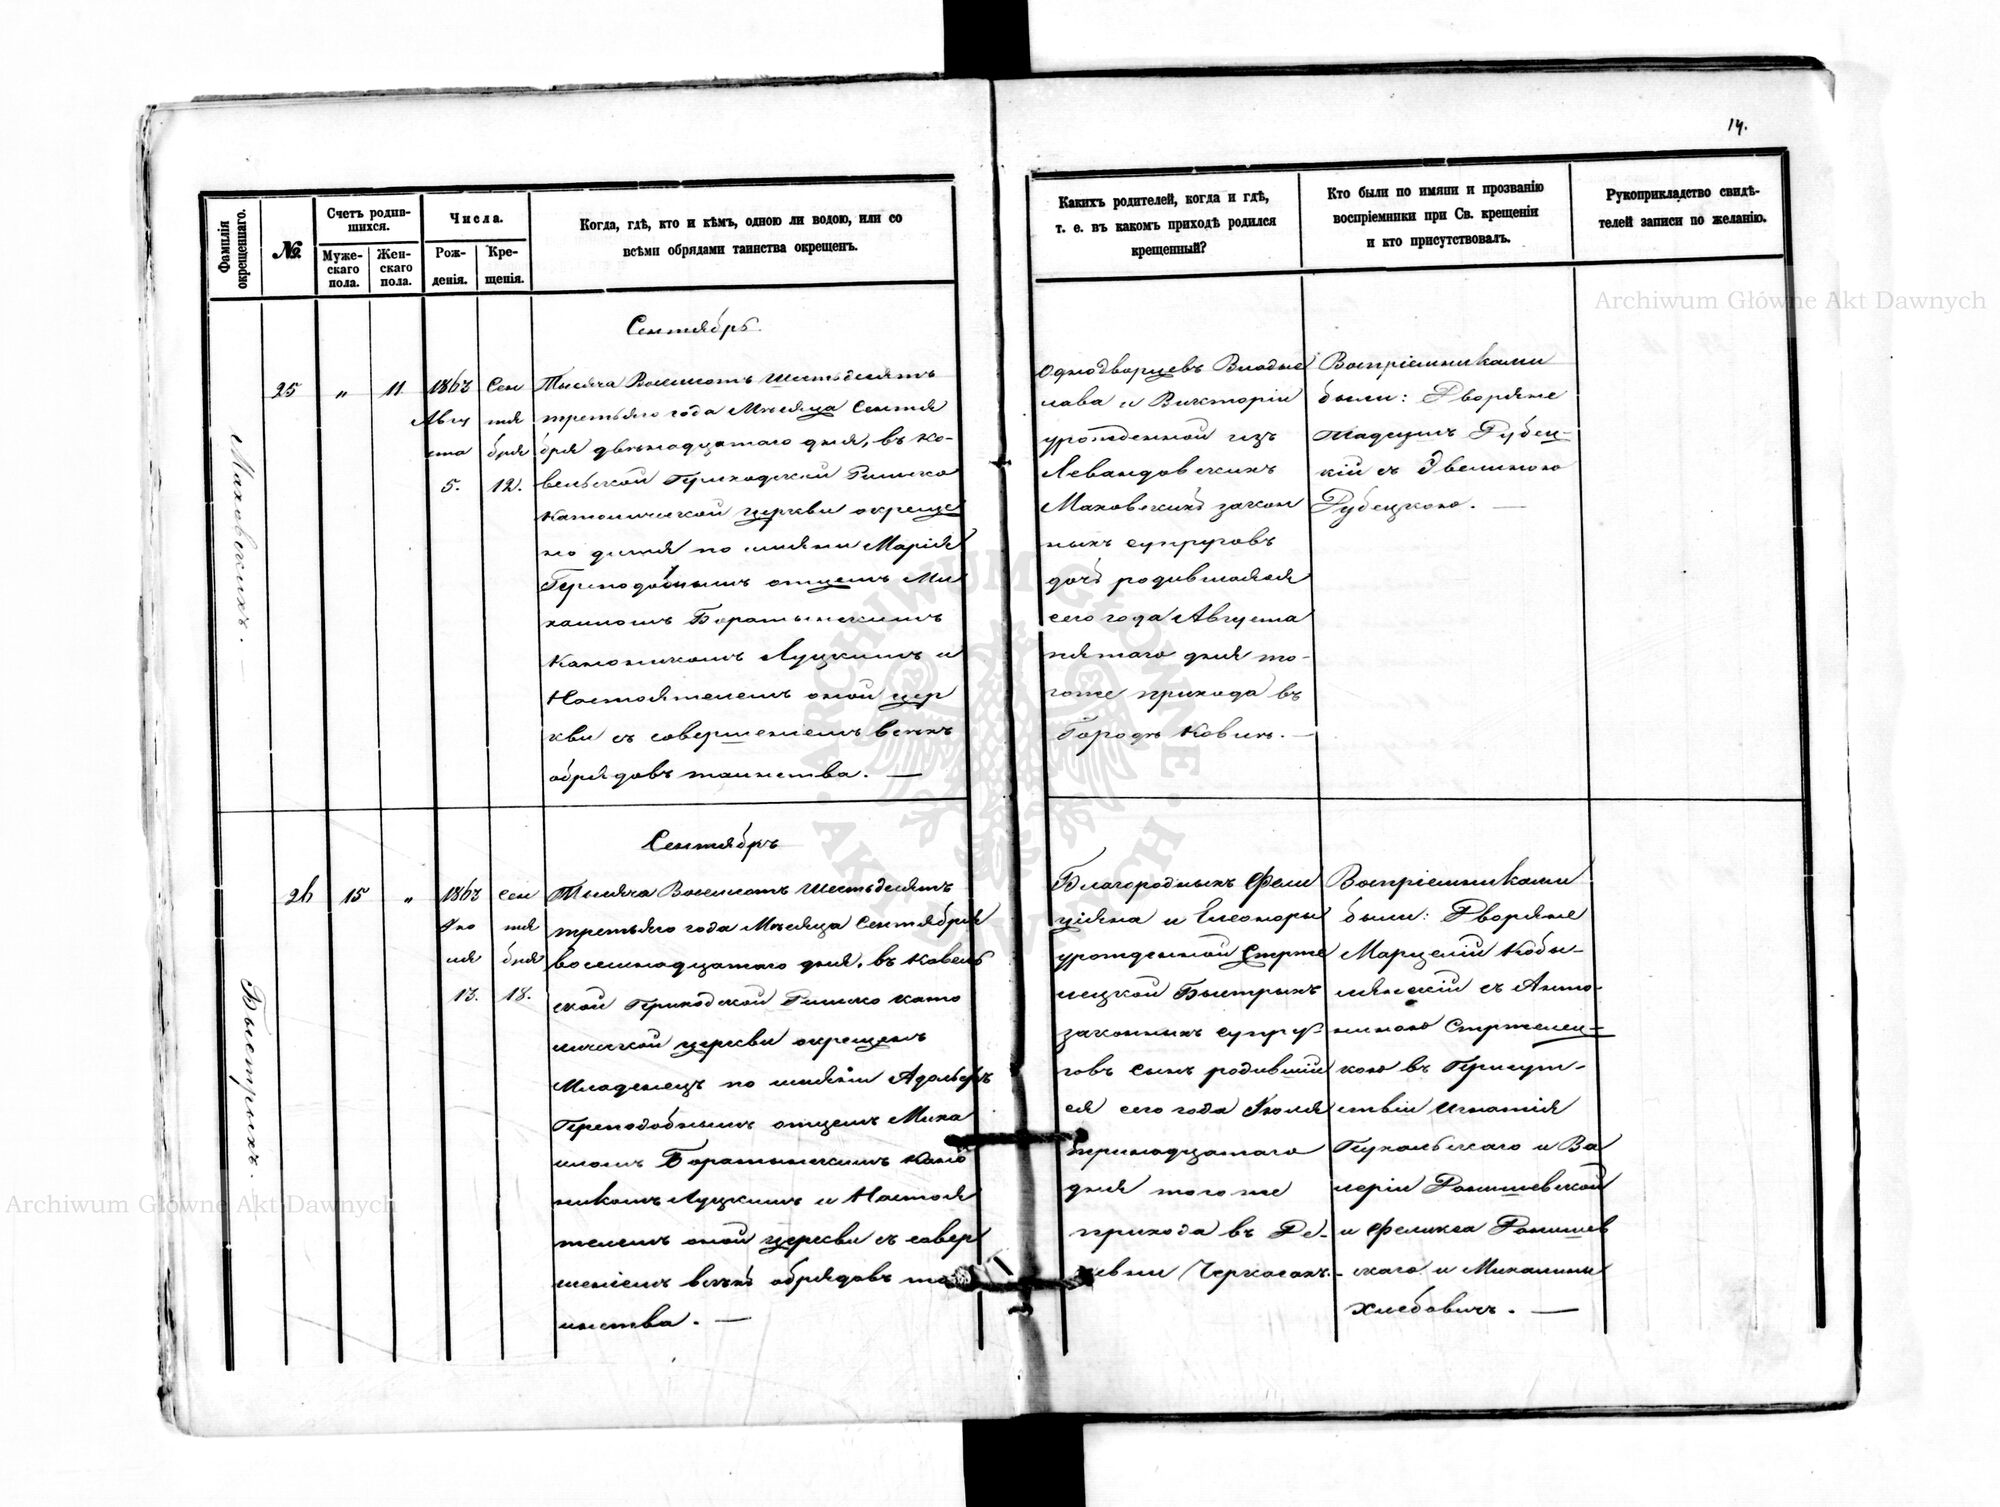 14.
Фамилія окрещеннаго.
№.
Счетъ родив-
шихся.
Муже-
скаго
пола.
Жен-
скаго
пола.
Числа.
Рож-
денія.
Кре-
щенія.
Когда, гдѣ, кто и кѣмъ, одною ли водою, или со
всѣми обрядами таинства окрещенъ.
Какихъ родителей, когда и гдѣ,
т. е. въ какомъ приходѣ родился
крещенный?
Кто были по имяни и прозванію
воспріемники при Св. крещеніи
и кто присутствовалъ.
Рукоприкладство свидѣ-
телей записи по желанію.
Archiwum Główne Akt Dawnych
Маховскихъ. —
25
"
11
1863
Авгу
ста
5.
Сен
тя
бря
12.
Сентябрь.
Тысяча Восемсотъ Шестьдесятъ
третьяго года Мѣсяца Сентя
бря двѣнадцатаго дня, въ Ко-
вельской Приходской Римско
Католической церкви окреще
но дитя по имяни Марія
Преподобнымъ отцемъ Ми
хаиломъ Боратынскимъ
Каноникомъ Луцкимъ и
Настоятелемъ оной цер
кви съ совершеніемъ всѣхъ
обрядовъ таинства. —
Однодворцевъ Владис
лава и Викторіи
урожденной изъ
Левандовскихъ
Маховскихъ закон
ныхъ супруговъ
дочь родившаяся
сего года Августа
пятаго дня то-
гоже прихода въ
Городѣ Ковлѣ. —
Воспріемниками
были: Дворяне
Рубец-
кій съ Эвелиною
Рубецкою. —
Быстрыхъ.
26
15
"
1863
Ію
ля
13.
Сен
тя
бря
18.
Сентябрь
Тысяча Восемсотъ Шестьдесятъ
третьяго года Мѣсяца Сентября
восемнадцатаго дня, въ Ковель
ской Приходской Римско като
лической церкви окрещенъ
Младенецъ по имяни Адольфъ
Преподобнымъ отцемъ Миха
иломъ Боратынскимъ Кано
никомъ Луцкимъ и Настоя
телемъ оной церкви съ совер
шеніемъ всѣхъ обрядовъ та
инства. —
Благородныхъ Фели
ціяна и Елеоноры
урожденной Стрже
лецкой Быстрыхъ
законныхъ супру-
говъ сынъ родившій
ся сего года Іюля
тринадцатаго
дня тогоже
прихода въ Де-
ревни Черкасахъ.
Воспріемниками
были: Дворяне
Марцелій Кобы-
лянскій съ Анто-
ниною Стржелец-
кою въ Присут-
ствіи Игнатія
Пухальскаго и Ва
леріи
и Феликса
скаго и Михалины
Хлебовичъ. —
Archiwum Główne Akt Dawnych
ARCHIWUM GŁÓWNE AKT DAWNYCH